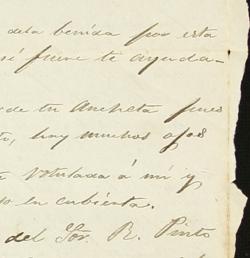 dela benida por esta
si fuere te ayuda-
de tu Ancheta pues
hay muchos ojos
rotulada á mi y
en cubierta.
del Sor. R. Pinto